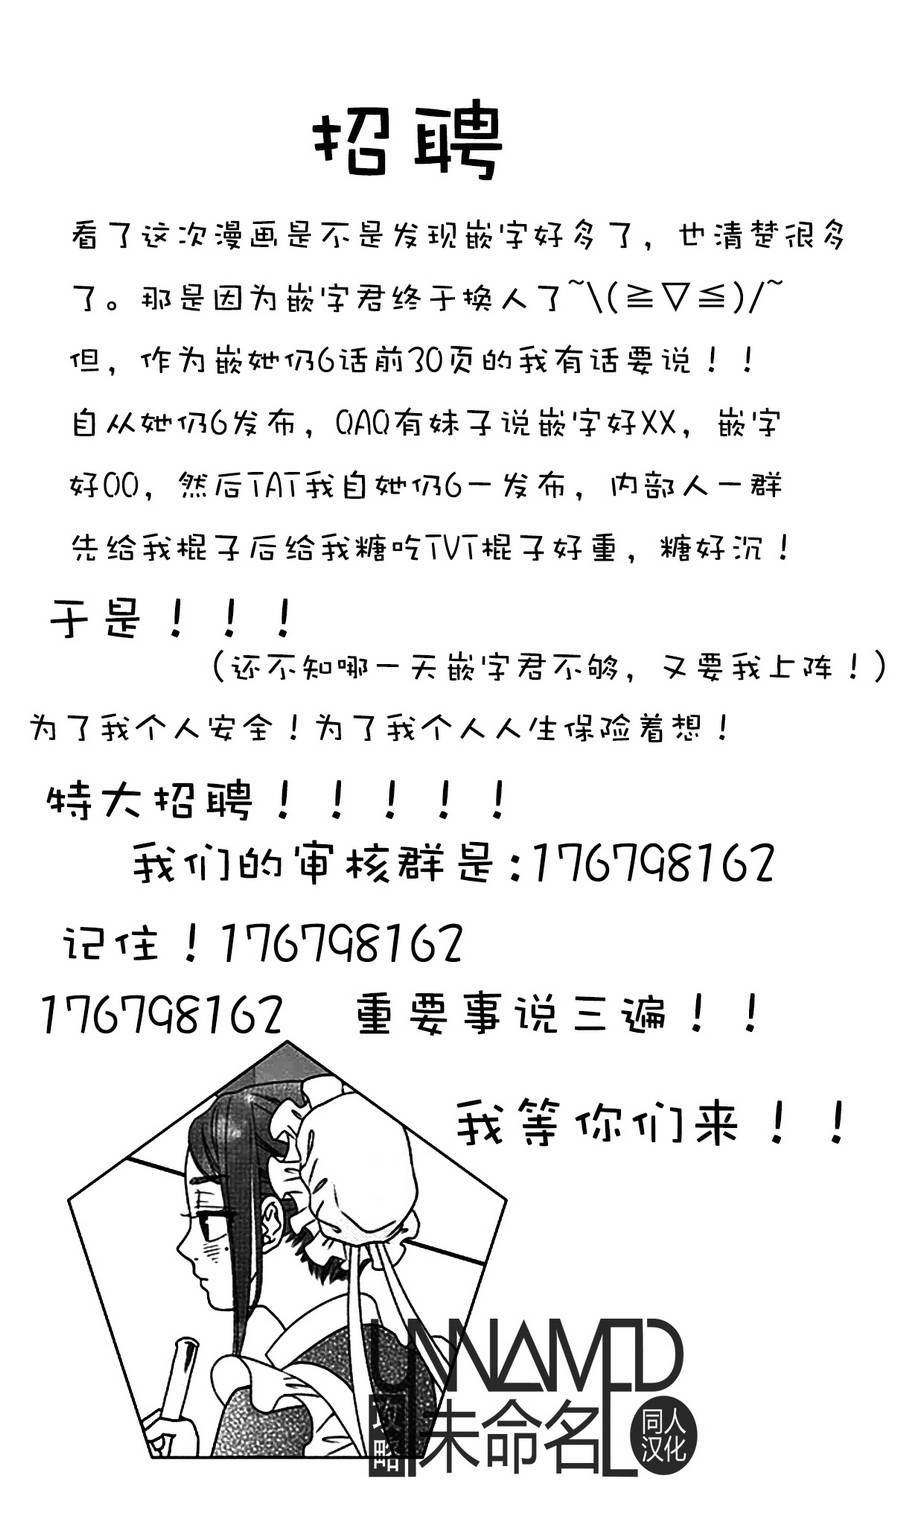 招聘
看了这次漫画是不是发现嵌字好多了，也清楚很多
了。那是因为嵌字君终于换人了~\(≧▽≦)/~
但，作为嵌她仍6话前30页的我有话要说！！
自从她仍6发布，QAQ有妹子说嵌字好XX，嵌字
好OO，然后TAT我自她仍6一发布，内部人一群
先给我棍子后给我糖吃TVT棍子好重，糖好沉！
于是！！！
（还不知哪一天嵌字君不够，又要我上阵！）
为了我个人安全！为了我个人人生保险着想！
特大招聘！！！！！
我们的审核群是:176798162
记住！176798162
176798162 重要事说三遍！！
我等你们来！！
UNNAMED
攻略
未命名
同人
汉化